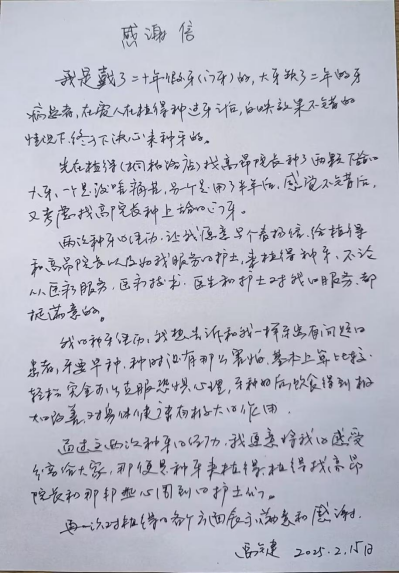 感谢信
我是戴了二十年假牙(门牙)的，大牙缺了二年的牙
病患者，在家人在植得种过牙后，自我效果不错的
情况下，终于下决心来种牙的。
先在植得(桐柏路店)找高昂院长种了两颗下面的
大牙，一个是没啥痛苦，另一个是用了半年后，感觉不错后，
又考虑找高院长种上面的门牙。
两次种牙的活动，让我愿意早个看好信，给植得
和高昂院长以及为我服务的护士，来植得种牙，不论
从医疗服务，医疗技术，医生和护士对我的服务，都
挺满意的。
我的种牙活动，我想告诉和我一样牙患有问题的
患者，牙要早种，种时没有那么害怕，基本上算比较
轻松，完全可以克服恐惧心理，牙种的后饮食得到极
大的改善，对身体健康有极大的作用。
通过这两次种牙的经历，我愿意将我的感受
分享给大家，那便是种牙来植得，植得找高昂
院长和那那些心周到的护士们。
再一次对植得的各个方面表示满意和感谢。
2025.2.15日